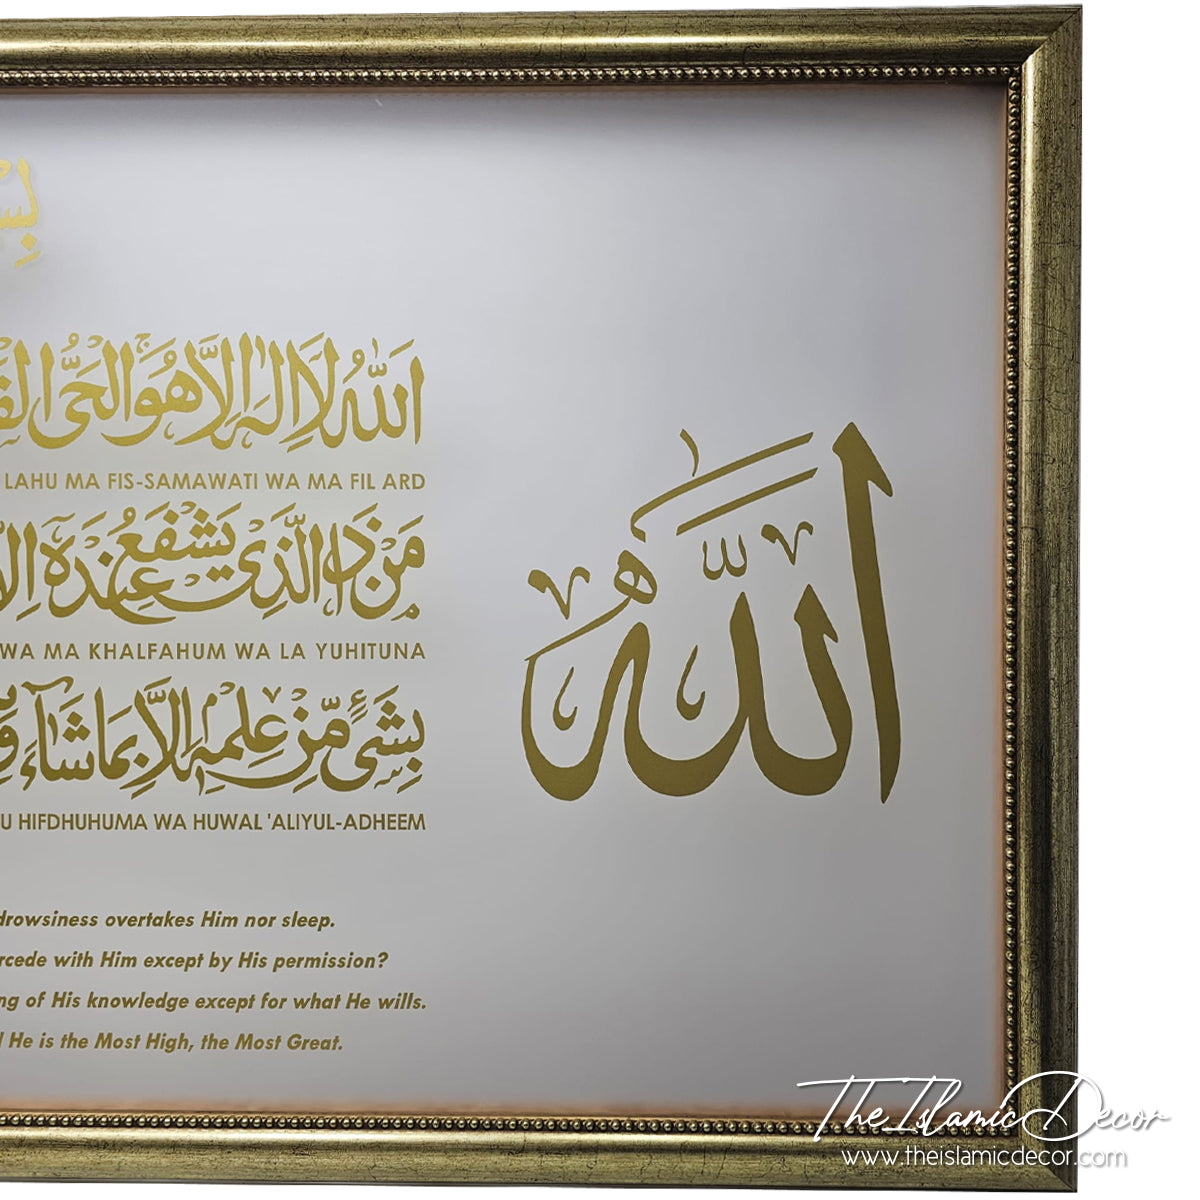 بِسْ
اَللّٰهُ لَاۤ اِلٰهَ اِلَّا هُوَۚ الْحَیُّ
LAHU MA FIS-SAMAWATI WA MA FIL ARD
مَنْ ذَا الَّذِیْ یَشْفَعُ عِنْدَهٗۤ
WA MA KHALFAHUM WA LA YUHITUNA
بِشَیْءٍ مِّنْ عِلْمِهٖۤ اِلَّا بِمَا شَآءَ
U HIFDHUHUMA WA HUWAL 'ALIYUL-ADHEEM
اللّٰهُ
drowsiness overtakes Him nor sleep.
rcede with Him except by His permission?
ng of His knowledge except for what He wills.
He is the Most High, the Most Great.
The Islamic Decor
www.theislamicdecor.com